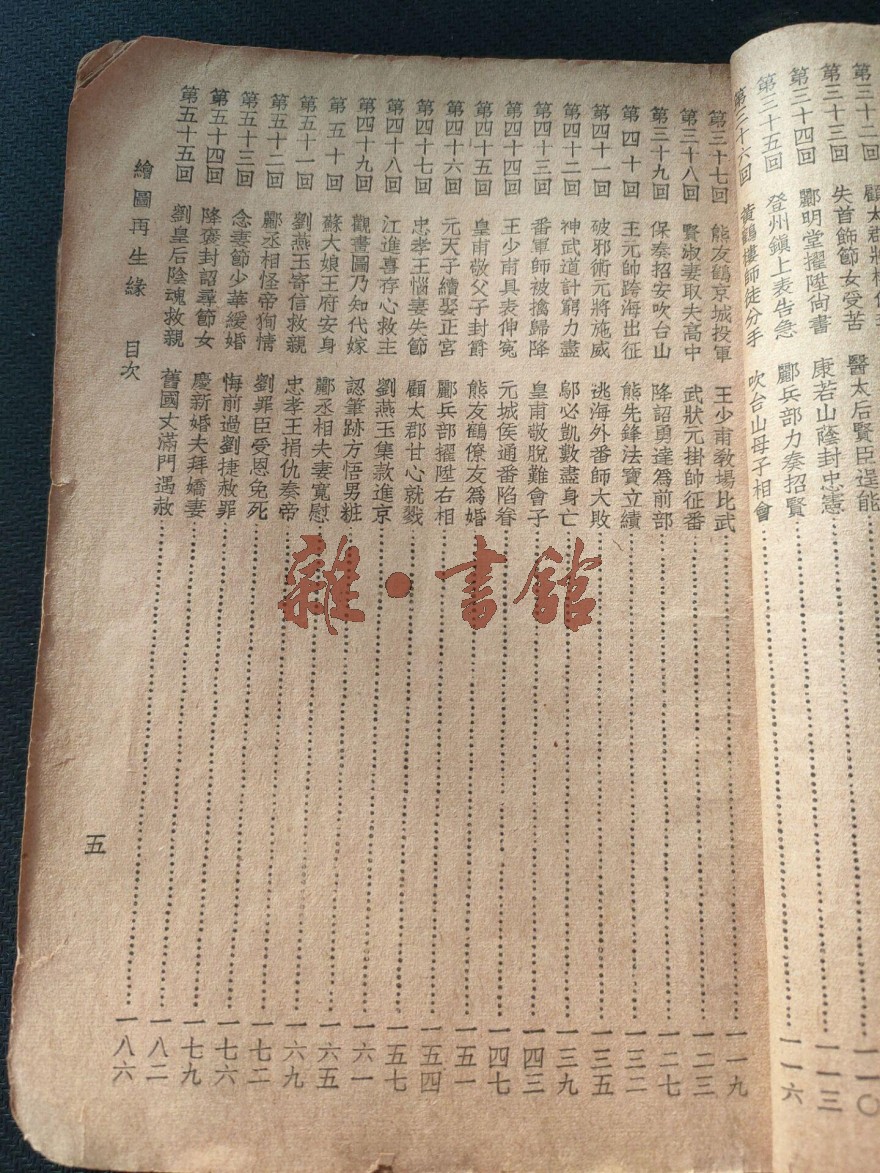 第三十二回 顧太郡將
第三十三回 失首飾節女受苦 醫太后賢臣逞能
第三十四回 酈明堂擢陞尚書 康若山蔭封忠憲 一一〇
第三十五回 登州鎮上表告急 酈兵部力奏招賢 一一三
第三十六回 黃鶴樓師徒分手 吹台山母子相會 一一六
第三十七回 熊友鶴京城投軍 王少甫敎場比武 一一九
第三十八回 賢淑妻取夫高中 武狀元掛帥征番 一二三
第三十九回 保奏招安吹台山 降詔勇達為前部 一二七
第四十回 王元帥跨海出征 熊先鋒法寶立績 一三二
第四十一回 破邪術元將施威 逃海外番師大敗 一三五
第四十二回 神武道計窮力盡 鄔必凱數盡身亡 一三九
第四十三回 番軍師被擒歸降 皇甫敬脫難會子 一四三
第四十四回 王少甫具表伸寃 元城侯通番陷眷 一四七
第四十五回 皇甫敬父子封爵 熊友鶴僚友爲婚 一五一
第四十六回 元天子續娶正宮 酈兵部擢陞右相 一五四
第四十七回 忠孝王惱妻失節 顧太郡甘心就戮 一五七
第四十八回 江進喜存心救主 劉燕玉集款進京 一六一
第四十九回 觀畫圖乃知代嫁 認筆跡方悟男粧 一六五
第五十回 蘇大娘王府安身 酈丞相夫妻寬慰 一六九
第五十一回 劉燕玉寄信救親 忠孝王捐仇奏帝 一七二
第五十二回 酈丞相怪帝徇情 劉罪臣受恩免死 一七六
第五十三回 念妻節少華緩婚 悔前過劉捷赦罪 一七九
第五十四回 降褒封詔尋節女 慶新婚夫拜嬌妻 一八二
第五十五回 劉皇后陰魂救親 舊國丈滿門遇赦 一八六
繪圖再生緣 目次
五
雜·書館